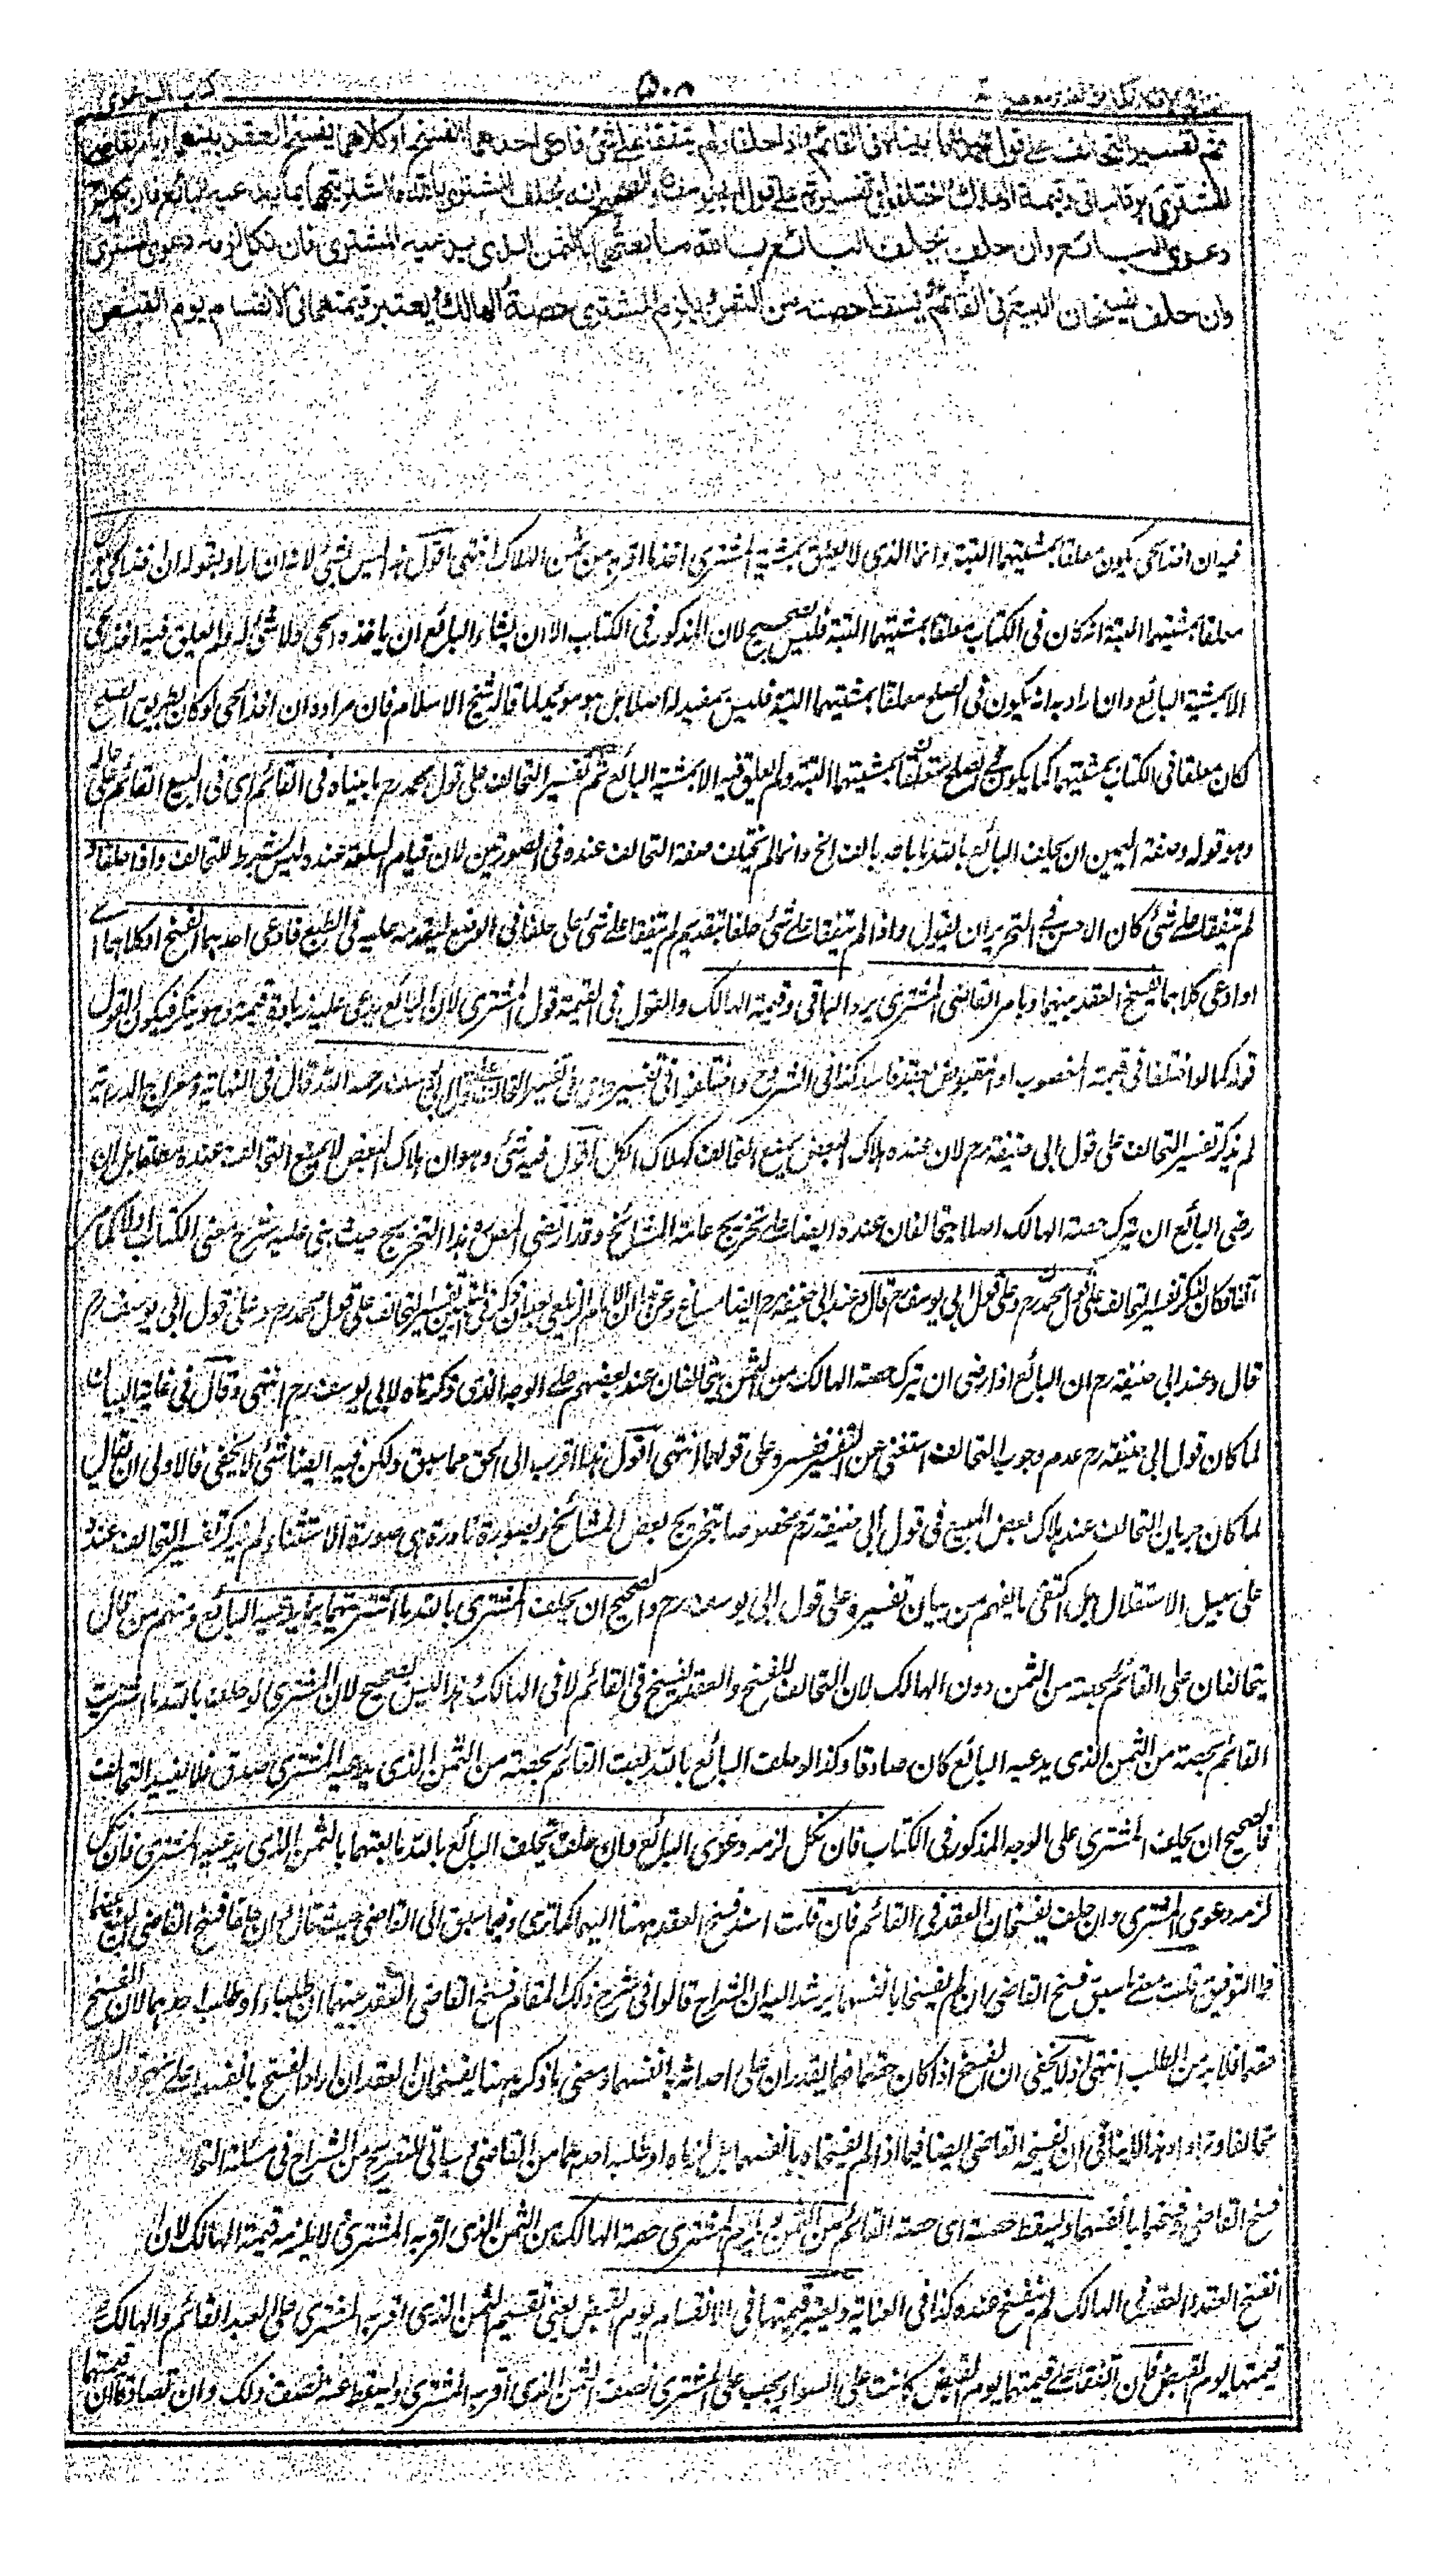 کتاب الدعوی
۵۰۸
ثم تفسير التحالف على قول محمد ما بيناه فى القائم واذا حلفا ولم يتفقا على شئ فادعى احدهما الفسخ او كلاهما يفسخ العقد بينهما ويأمر القاضى
المشترى برد الباقى وقيمة الهالك واختلفوا فى تفسيره على قول ابى يوسف والصحيح انه يحلف المشترى بالله ما اشتريتهما بما يدعيه البائع فان نكل لزمه
دعوى البائع وان حلف يحلف البائع بالله ما بعتهما بالثمن الذى يدعيه المشترى فان نكل لزمه دعوى المشترى
وان حلف يفسخان البيع فى القائم ويسقط حصته من الثمن ويلزم المشترى حصة الهالك ويعتبر قيمتهما فى الانقسام يوم القبض
فيه ان اخذ الحى يكون معلقا بمشيتهما البتة وانما الذى لا يعلق بمشية المشترى اخذ ما اقر به من ثمن الهالك انتهى اقول هذا ليس بشئ لانه ان اراد بقوله ان اخذ الحى
معلقا بمشيتهما البتة انه كان فى الكتاب معلقا بمشيتهما البتة فليس بصحيح لان المذكور فى الكتاب الا ان يشاء البائع ان ياخذ الحى ولا شئ له ولم يعلق فيه اخذ الحى
الا بمشية البائع وان اراد به انه يكون فى الصلح معلقا بمشيتهما البتة فليس بمفيد له اصلا بل هو مؤيد لما قاله شيخ الاسلام فان مراده ان اخذ الحى لو كان بطريق الصلح
لكان معلقا فى الكتاب بمشيتهما كما يكون فى الصلح متعلقا بمشيتهما البتة ولم يعلق فيه الا بمشية البائع ثم تفسير التحالف على قول محمد رح ما بيناه فى القائم اى فى المبيع القائم على حاله
وهو قوله وصفة اليمين ان يحلف البائع بالله ما باعه بالف الخ وانما لم يختلف صفة التحالف عنده فى الصورتين لان قيام السلعة عنده ليس بشرط للتحالف واذا حلفا و
لم يتفقا على شئ كان الاحسن فى التحرير ان يقول واذا لم يتفقا على شئ حلفا بتقديم لم يتفقا على شئ على حلفا فى الوضع لتقدمه عليه فى الطبع فادعى احدهما الفسخ او كلاهما اى
او ادعى كلاهما يفسخ العقد بينهما ويامر القاضى المشترى برد الباقى وقيمة الهالك والقول فى القيمة قول المشترى لان البائع يدعى عليه زيادة قيمة وهو ينكر فيكون القول
قوله كما لو اختلفا فى قيمة المغصوب او المقبوض بعقد فاسد كذا فى الشروح واختلفوا فى تفسيره اى فى تفسير التحالف على قول ابى يوسف رحمه الله قال فى النهاية ومعراج الدراية
لم يذكر تفسير التحالف على قول ابى حنيفة رح لان عنده هلاك البعض يمنع التحالف كهلاك الكل اقول فيه شئ وهو ان هلاك البعض لا يمنع التحالف عنده مطلقا بل ان
رضى البائع ان يترك حصة الهالك اصلا يتحالفان عنده ايضا على تخريج عامة المشائخ وقد ارتضى المصنف هذا التخريج حيث بنى عليه شرح معنى الكتاب اولا كما مر
آنفا فكان لذكر تفسير التحالف على قول محمد رح وعلى قول ابى يوسف رح قال وعند ابى حنيفة رح ايضا مساغ وعن هذا ان الامام الزيلعى بعد ان ذكر فى التبيين تفسير التحالف على قول محمد رح وعلى قول ابى يوسف رح
قال وعند ابى حنيفة رح ان البائع اذا رضى ان يترك حصة الهالك من الثمن يتحالفان عند بعضهم على الوجه الذى ذكرناه لابى يوسف رح انتهى وقال فى غاية البيان
لما كان قول ابى حنيفة رح عدم وجوب التحالف استغنى عن التفسير ففسر على قولهما انتهى اقول هذا اقرب الى الحق مما سبق ولكن فيه ايضا شئ لا يخفى فالاولى ان يقال
لما كان جريان التحالف عند هلاك بعض المبيع فى قول ابى حنيفة رح مخصوصا بتخريج بعض المشائخ وبصورة نادرة هى صورة الاستثناء لم يذكر تفسير التحالف عنده
على سبيل الاستقلال بل اكتفى بالفهم من بيان تفسيره على قول ابى يوسف رح والصحيح ان يحلف المشترى بالله ما اشتريتهما بما يدعيه البائع ومنهم من قال
يتحالفان على القائم بحصته من الثمن دون الهالك لان التحالف للفسخ والعقد يفسخ فى القائم لا فى الهالك وهذا ليس بصحيح لان المشترى لو حلف بالله ما اشتريت
القائم بحصته من الثمن الذى يدعيه البائع كان صادقا وكذا لو حلف البائع بالله ما بعت القائم بحصته من الثمن الذى يدعيه المشترى صدق فلا يفيد التحالف
فالصحيح ان يحلف المشترى على الوجه المذكور فى الكتاب فان نكل لزمه دعوى البائع وان حلف يحلف البائع بالله ما بعتهما بالثمن الذى يدعيه المشترى فان نكل
لزمه دعوى المشترى وان حلف يفسخان العقد فى القائم فان قلت اسند فسخ العقد ههنا اليهما كما ترى وفيما سبق الى القاضى حيث قال وان حلفا فسخ القاضى البيع بينهما
فما التوفيق قلت معنى ما سبق فسخ القاضى ان لم يفسخا بانفسهما يرشد اليه ان الشراح قالوا فى شرح ذلك المقام فسخ القاضى العقد بينهما ان طلباه او طلب احدهما لان الفسخ
حقهما فلا بد من الطلب انتهى اذ لا يخفى ان الفسخ اذا كان حقهما فهما يقدران على احداثه بانفسهما ومعنى ما ذكر ههنا يفسخان العقد ان ارادا الفسخ بانفسهما
وهذا لا ينافى ان يفسخه القاضى ايضا فيما اذا لم يفسخاه بانفسهما بل طلباه او طلبه احدهما من القاضى وسياتى التصريح من الشراح فى مسئلة التحا
فسخ القاضى وفسخهما بانفسهما ويسقط حصته اى حصة القائم من الثمن ويلزم المشترى حصة الهالك من الثمن الذى اقر به المشترى ولا يلزمه قيمة الهالك لان
انفسخ العقد والعقد فى الهالك لم ينفسخ عنده كذا فى العناية ويعتبر قيمتهما فى الانقسام يوم القبض يعنى يقسم الثمن الذى اقر به المشترى على العبد القائم والهالك على
قيمتهما يوم القبض فان اتفقا على قيمتهما يوم القبض كانت على السواء يجب على المشترى نصف الثمن الذى اقر به المشترى ويسقط عنه نصف ذلك وان تصادقا ان قيمتهما